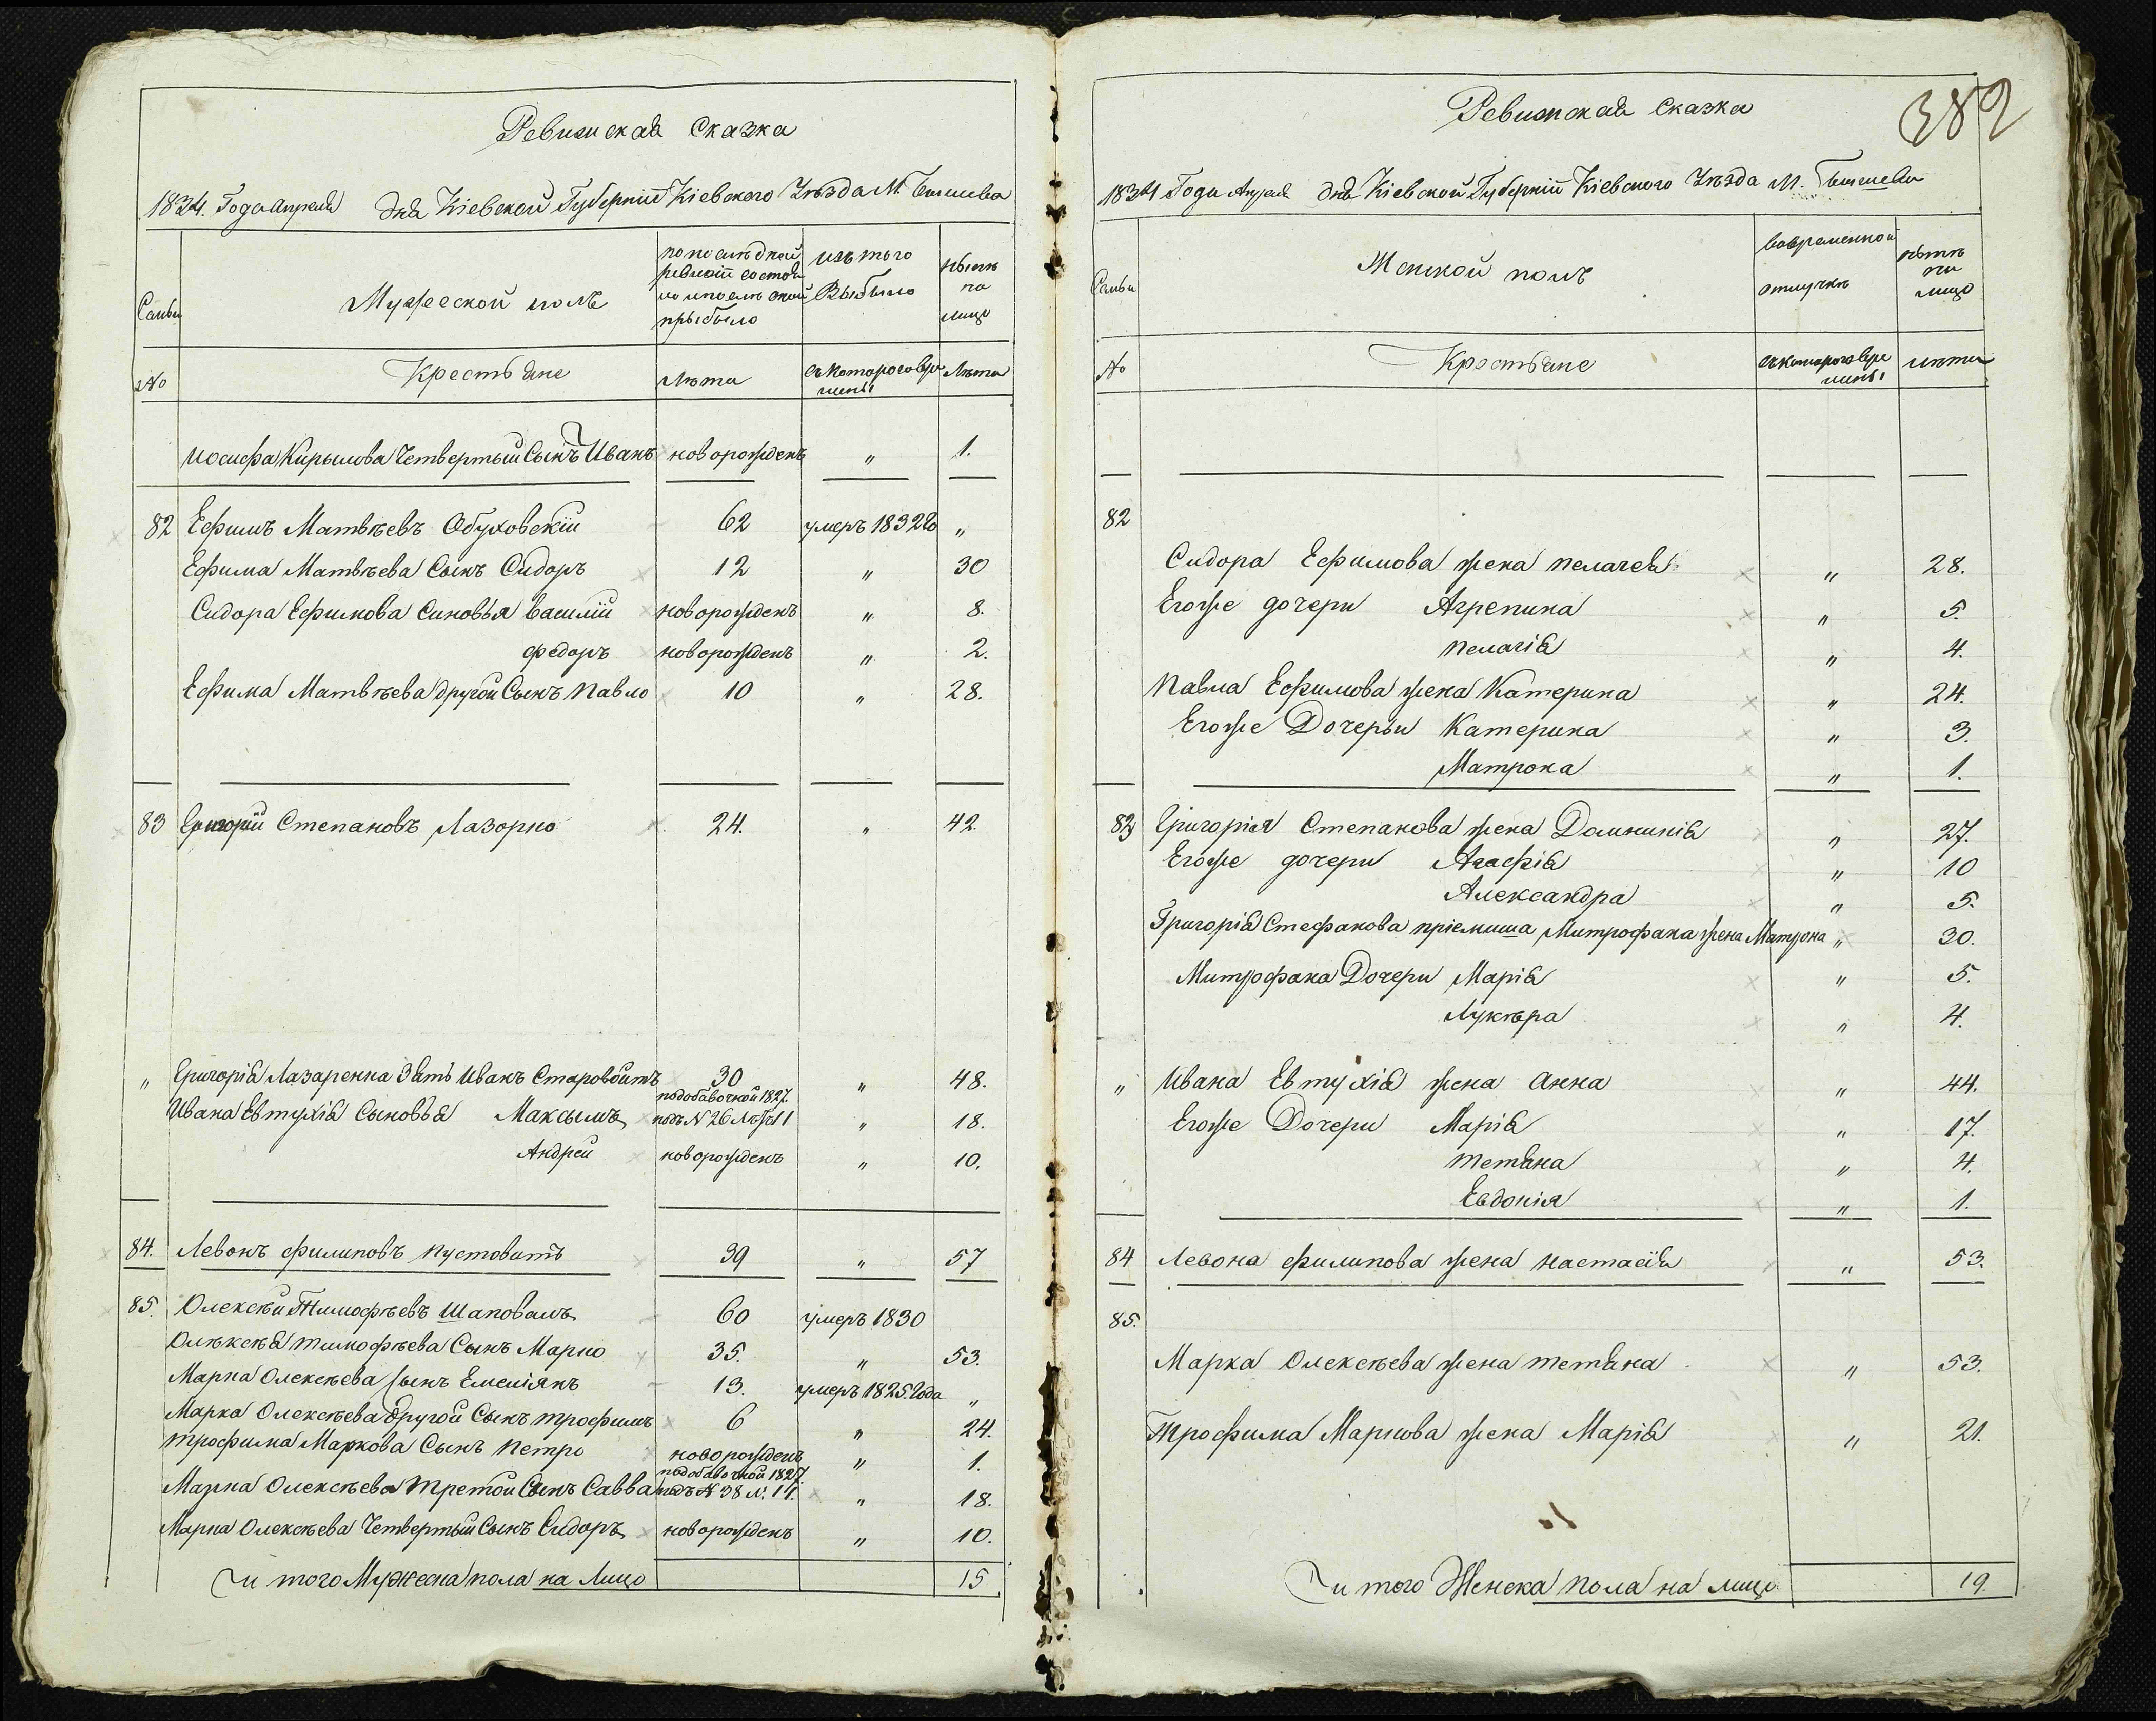 Ревижская Сказка
1834. Года Апреля дня Кіевской Губерніи Кіевского Уѣзда М. Бышева
Мужеской полъ
по последней ревизіи состояло и после оной прыбыло
изъ того Выбыло
ныне на лицо
Семьи
№
Крестьяне
Лѣта
съ которого времены
Лѣта
Иосифа Кирылова Четвертый Сынъ Иванъ новорожденъ " 1.
82 Ефимъ Матвѣевъ Обуховскій 62 умеръ 1832 го "
Ефима Матвѣева Сынъ Сидоръ 12 " 30
Сидора Ефимова Сыновья Василій новорожденъ " 8.
федоръ новорожденъ " 2.
Ефима Матвѣева другой Сынъ Павло 10 " 28.
83 Григорій Степановъ Лазорко 24. " 42.
" Григорія Лазаренка Зять Иванъ Старовойтъ 30 " 48.
Ивана Евтухія Сыновья Максымъ подобавочной 1827. подъ N 26 Лѣтъ 11 " 18.
Андрей новорожденъ " 10.
84. Левонъ филиповъ Пустовитъ 39 " 57
85. Олексѣй Тимофѣевъ Шаповалъ 60 умеръ 1830
Олѣксѣя тимофѣева Сынъ Марко 35. " 53.
Марка Олексѣева Сынъ Емеліянъ 13. умеръ 1825. Года "
Марка Олексѣева другой Сынъ трофимъ 6 " 24.
трофима Маркова Сынъ Петро новорожденъ " 1.
Марка Олексѣева Третой Сынъ Савва подобавочной 1827. подъ N 38 л. 11. " 18.
Марка Олексѣева Четвертый Сынъ Сидоръ новорожденъ " 10.
и того Мужеска пола на Лицо 15
382
Ревижская Сказка
1834 Года Апреля дня Кіевской Губерніи Кіевского Уѣзда М. Бышева
Женской полъ
вовременной отлучке
ныте на лицо
Семьи
№
Крестьяне
съ которого времены
лѣта
82
Сидора Ефимова жена пелагея " 28.
Егоже дочери Агрепина " 5.
пелагія " 4.
Павла Ефимова жена Катерина " 24.
Егоже Дочеры Катерина " 3.
Матрона " 1.
83 Григорія Степанова жена Домникія " 27.
Егоже дочери Агафія " 10
Александра " 5.
Григорія Стефанова пріемыша Митрофана жена Матрона " 30.
Митрофана Дочери Марія " 5.
Лукѣра " 4.
" Ивана Евтухія жена Анна " 44.
Егоже Дочери Марія " 17.
тетяна " 4.
Евдокія " 1.
84 Левона филипова жена настасія " 53.
85.
Марка Олексѣева жена тетяна " 53.
Трофима Маркова жена Марія " 21.
и того Женска пола на лицо 19.